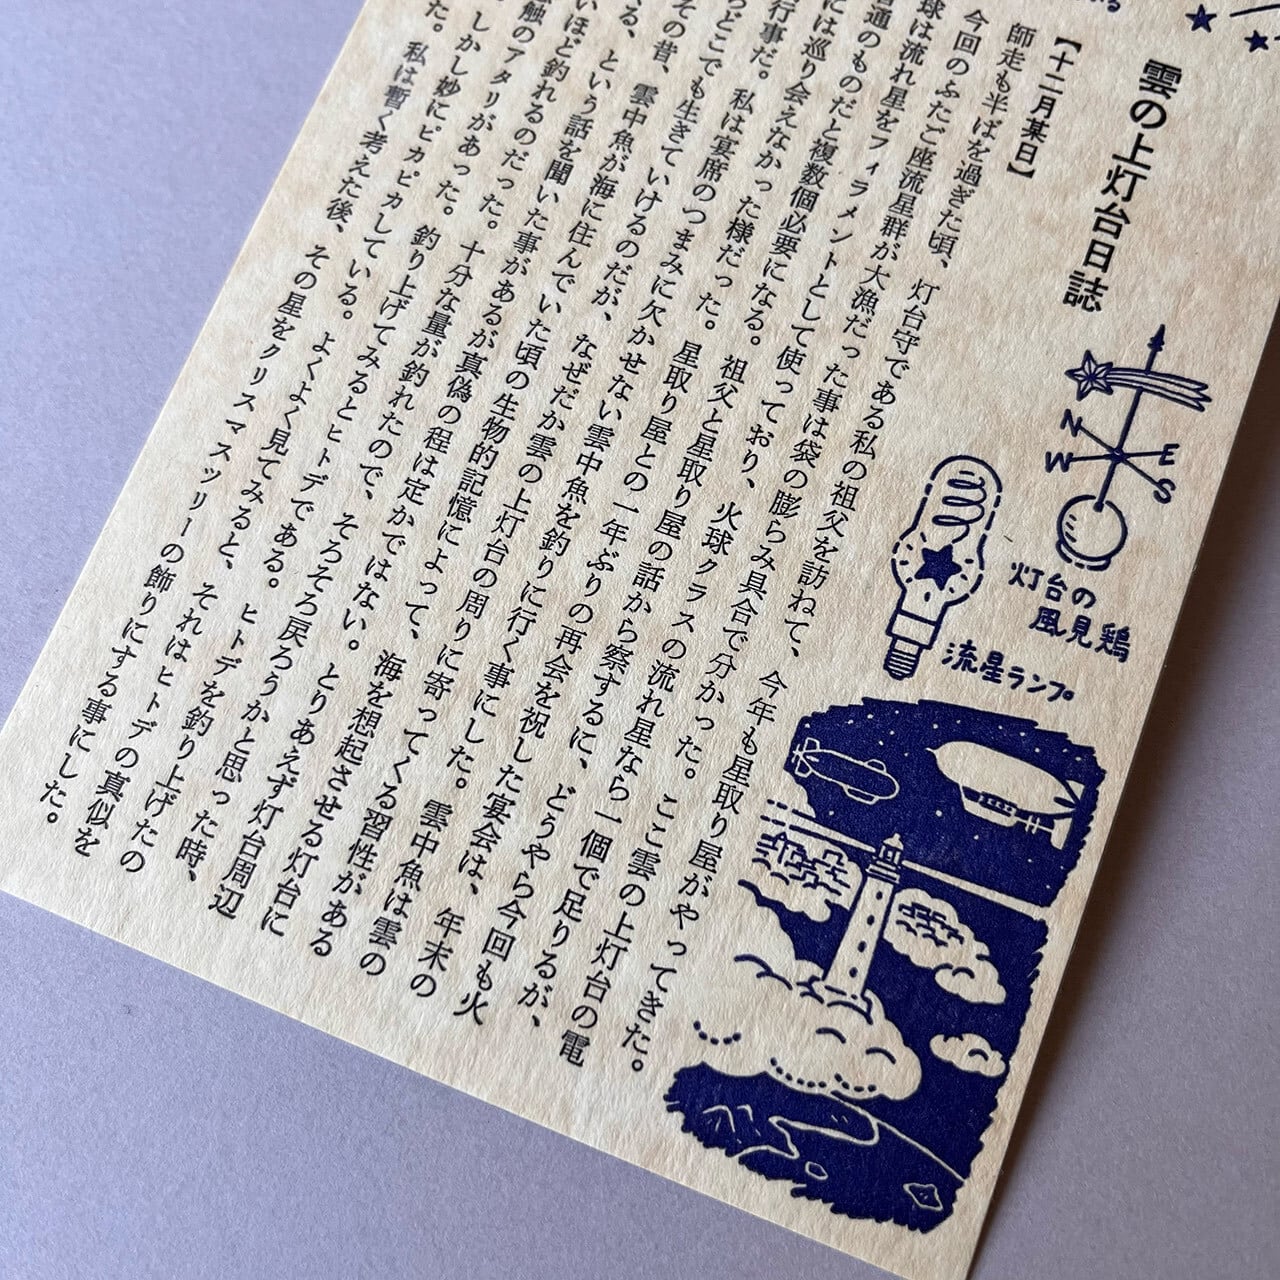 雲の上灯台日誌
【十二月某日】
師走も半ばを過ぎた頃、灯台守である私の祖父を訪ねて、今年も星取り屋がやってきた。
今回のふたご座流星群が大漁だった事は袋の膨らみ具合で分かった。ここ雲の上灯台の電
球は流れ星をフィラメントとして使っており、火球クラスの流れ星なら一個で足りるが、
普通のものだと複数個必要になる。祖父と星取り屋の話から察するに、どうやら今回も火
には巡り会えなかった様だった。星取り屋との一年ぶりの再会を祝した宴会は、年末の
行事だ。私は宴席のつまみに欠かせない雲中魚を釣りに行く事にした。雲中魚は雲の
らどこでも生きていけるのだが、なぜだか雲の上灯台の周りに寄ってくる習性がある
その昔、雲中魚が海に住んでいた頃の生物的記憶によって、海を想起させる灯台に
る、という話を聞いた事があるが真偽の程は定かではない。とりあえず灯台周辺
いほど釣れるのだった。十分な量が釣れたので、そろそろ戻ろうかと思った時、
触のアタリがあった。釣り上げてみるとヒトデである。ヒトデを釣り上げたの
しかし妙にピカピカしている。よくよく見てみると、それはヒトデの真似を
た。私は暫く考えた後、その星をクリスマスツリーの飾りにする事にした。
N
E
W
S
灯台の
風見鶏
流星ランプ